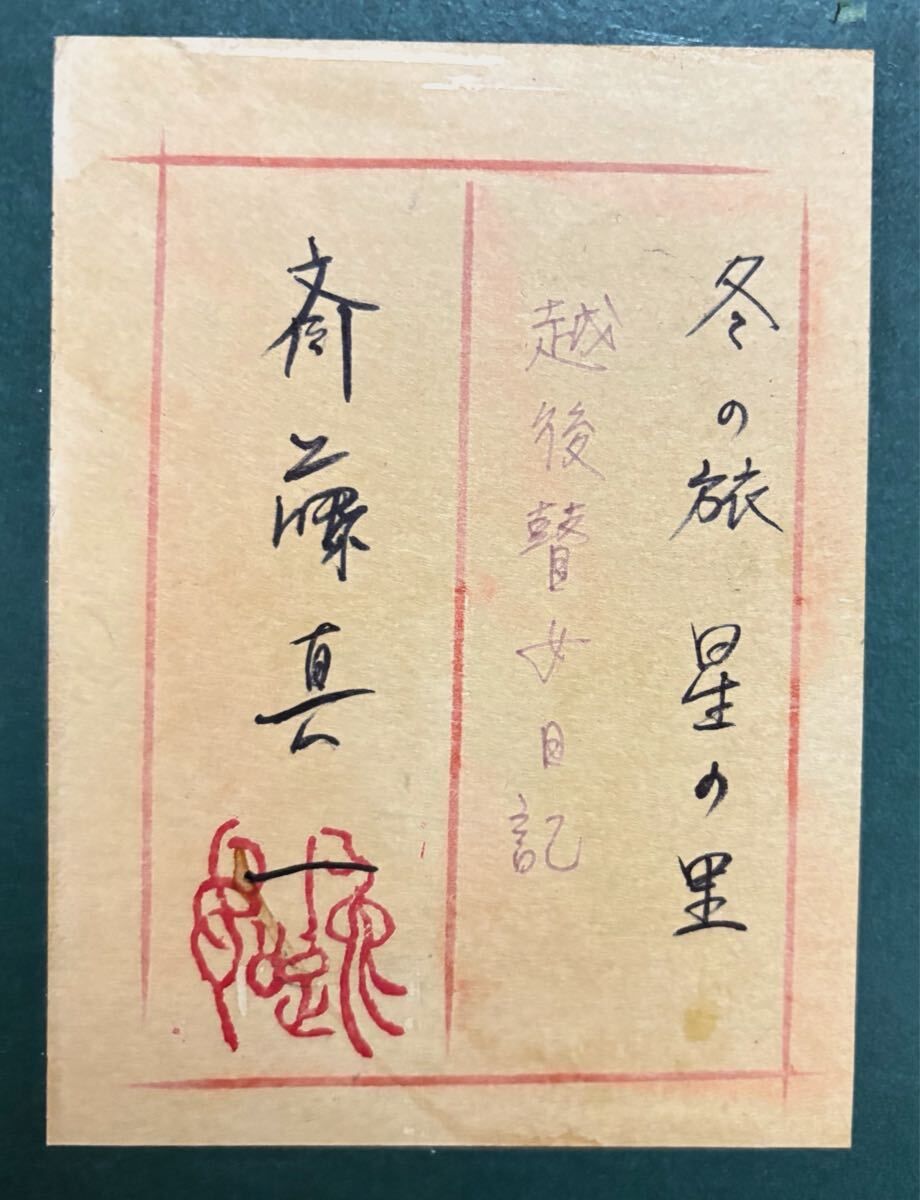 冬の旅 星の里
越後瞽女日記
斎藤真一